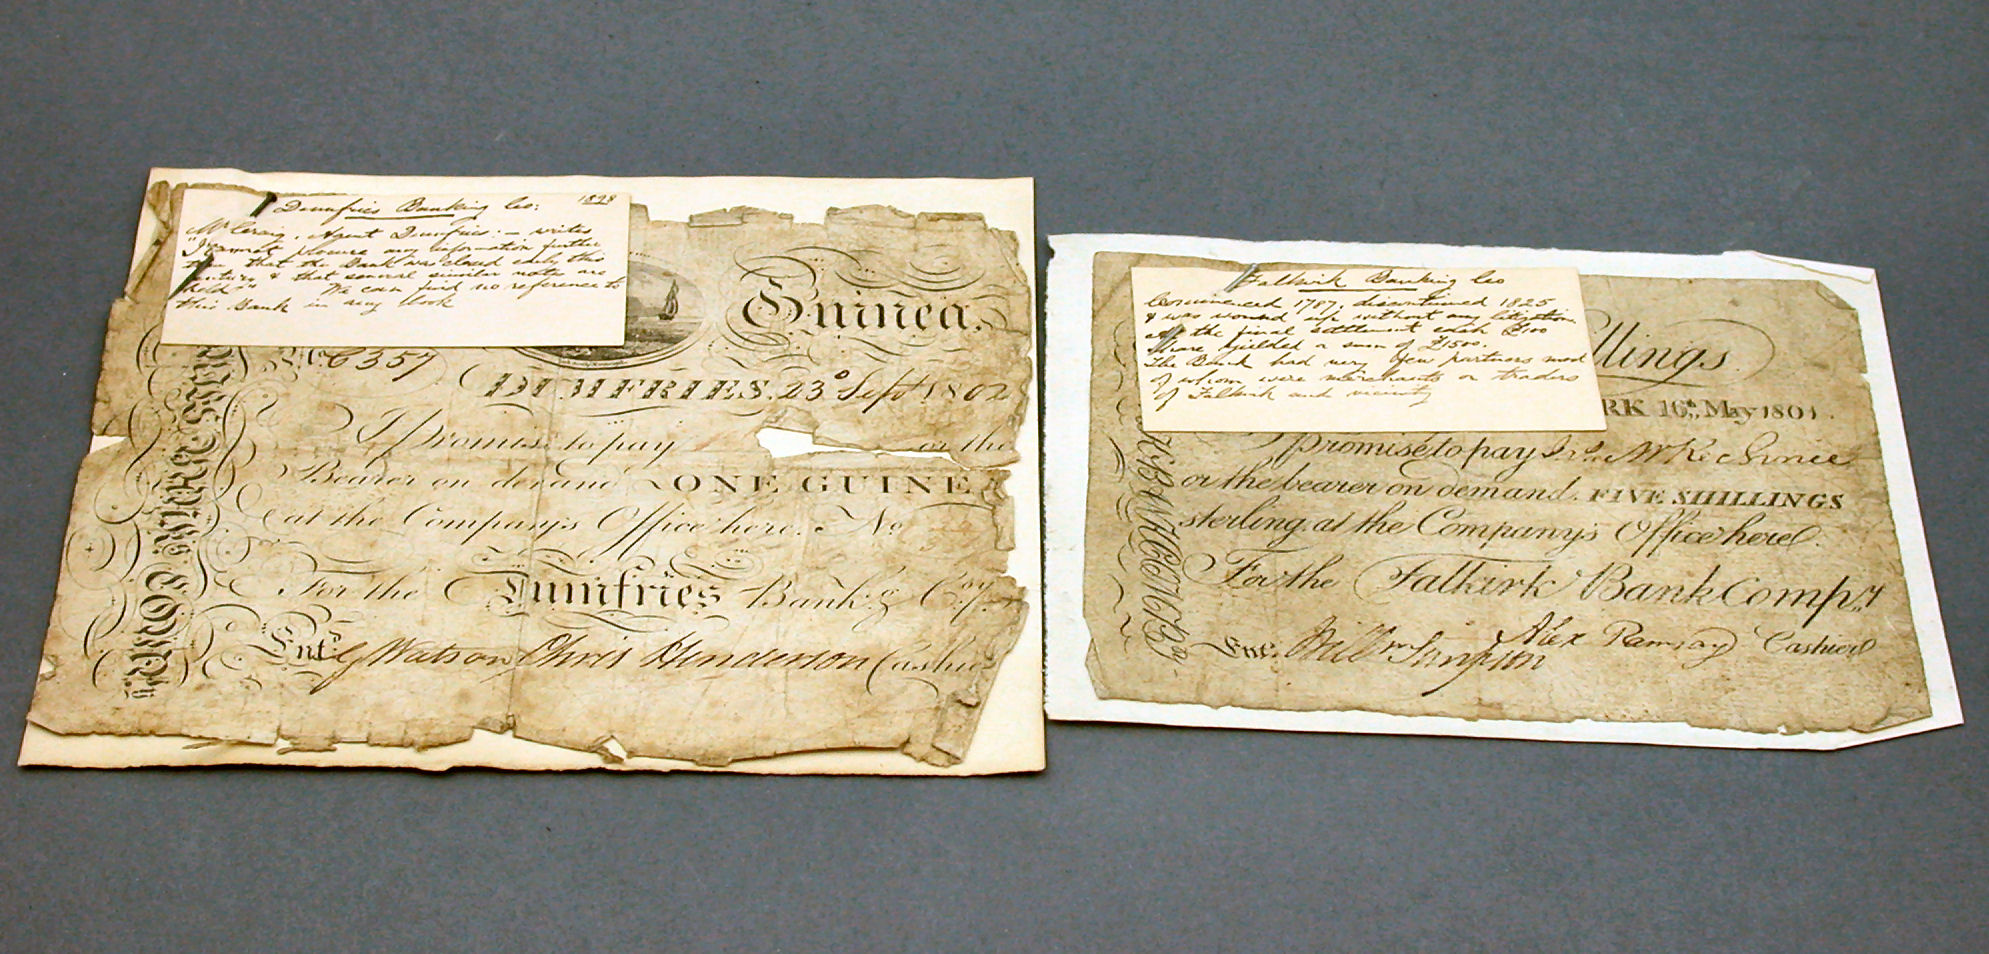 Dumfries Banking Co: 1898
Mr Craig, Agent Dumfries: – writes
"I cannot procure any information further
than that the Bank was closed early this
century & that several similar notes are
held". We can find no reference to
this Bank in any book
Guinea.
No C 357
DUMFRIES. 23° Sept 1802
I promise to pay or the
Bearer on demand ONE GUINEA
at the Company's Office here. No
For the Dumfries Bank.g Co.y
Ent.d G Watson Chris Henderson Cashier
Falkirk Banking Co
Commenced 1787, discontinued 1825
& was wound up without any litigation.
At the final settlement each £100
share yielded a sum of £1500.
The Bank had very few partners most
of whom were merchants or traders
of Falkirk and vicinity
llings.
RK 16th May 1801.
promise to pay
or the bearer on demand. FIVE SHILLINGS
sterling. at the Company's Office here.
For the Falkirk Bank Comp.y
Ent. Willm Simpson Alex Ramsay Cashier